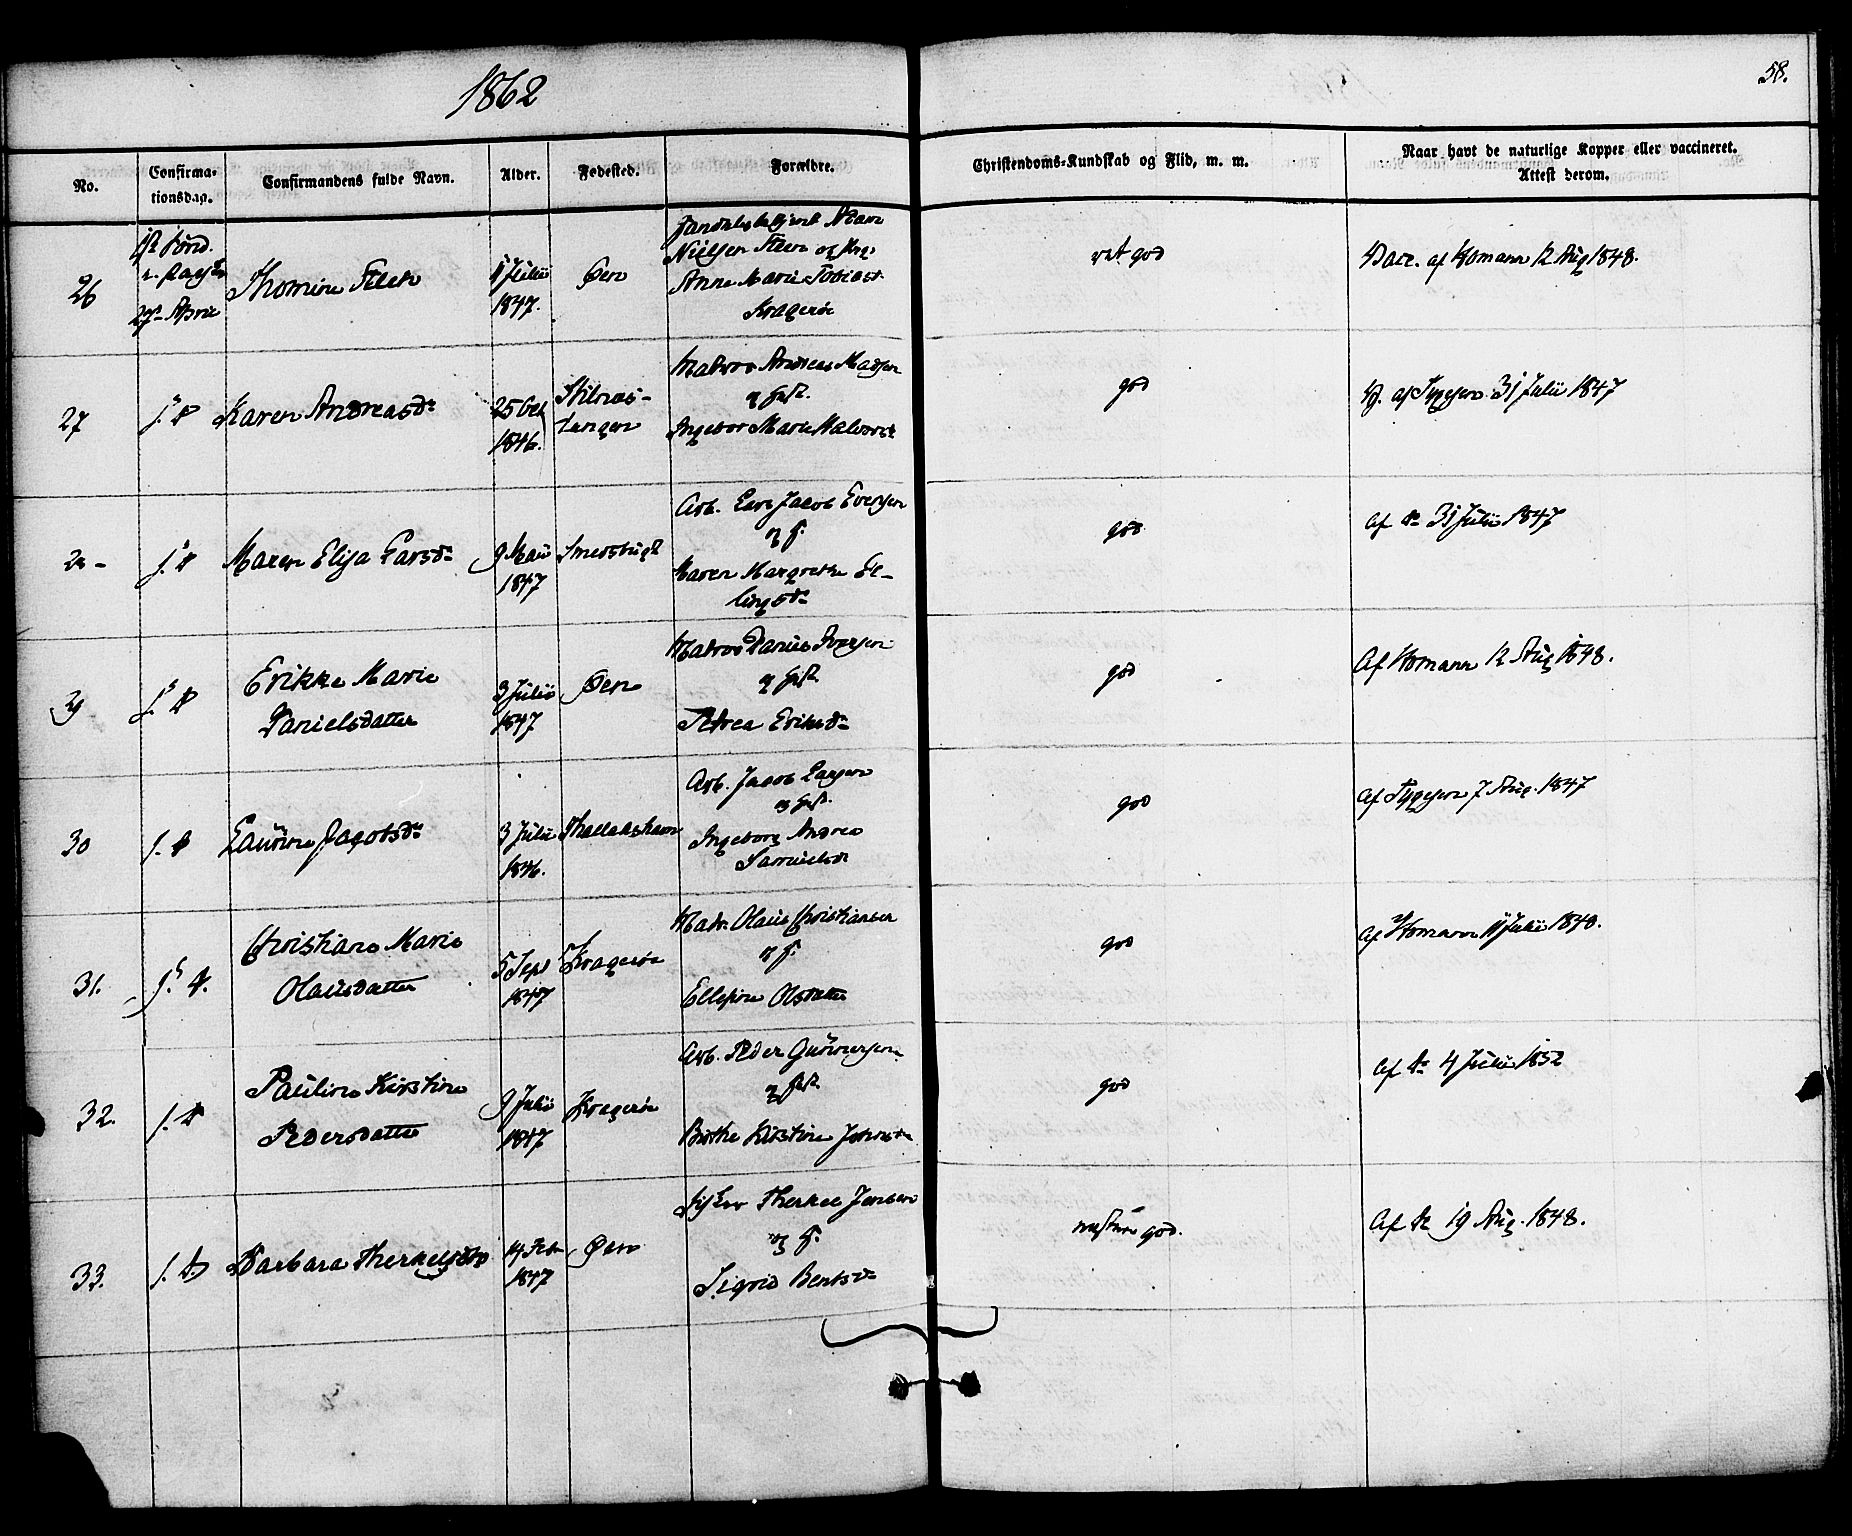 1862
58.
No.
Confirma-
tionsdag.
Confirmandens fulde Navn.
Alder.
Fødested.
Forældre.
Christendoms-Kundskab og Flid, m. m.
Naar havt de naturlige Kopper eller vaccineret.
Attest derom.
26
27de April
Thomine
Juli
1847.
Øen
Nielsen
Anne Marie Tobiasd.
Kragerøe
ret god
Vacc. af Homann 12 Aug 1848.
27
Karen Andreasdr
25 Oct
1846.
Matros Andreas Madsen
og Hust.
Ingebor Marie Halvorsd.
god
V. af Tygesen 31 Julii 1847
Maren Elisa Larsdr
9 Maii
1847
Arb. Lars Jacob Evensen
og H.
Maren Margrethe El-
lingsdr
god
af do 31 Julii 1847
Erikke Marie
Danielsdatter
3 Julii
1847
Øen
Matros Daniel Iversen
og Hust.
Petrea Eriksdr
god
Af Homann 12 Aug 1848.
30
Laurine Jacobsdr
3 Julii
1846.
Arb. Jacob Larsen
og Hust.
Ingeborg Andrea
Samuelsdr
god
af Tygesen 7 Aug. 1847
31.
Christiane Marie
Olausdatter
5 Sept
1847
Kragerøe
Matr. Olaus Christiansen
og H.
Ellefine Olsdatter
god
af Homann Julii 1848.
32.
Pauline Kirstine
Pedersdatter
9 Julii
1847
Kragerøe
Arb. Peder Gunnersen
og Hust.
Birthe Kirstine Johnsdr
god
af do 4 Julii 1852
33.
Barbara Therkelsdtr
14 Febr
1847
Øen
Fisker Therkel Jensen
og H.
Sigrid Bentsdr
god.
Af do 19 Aug. 1848.